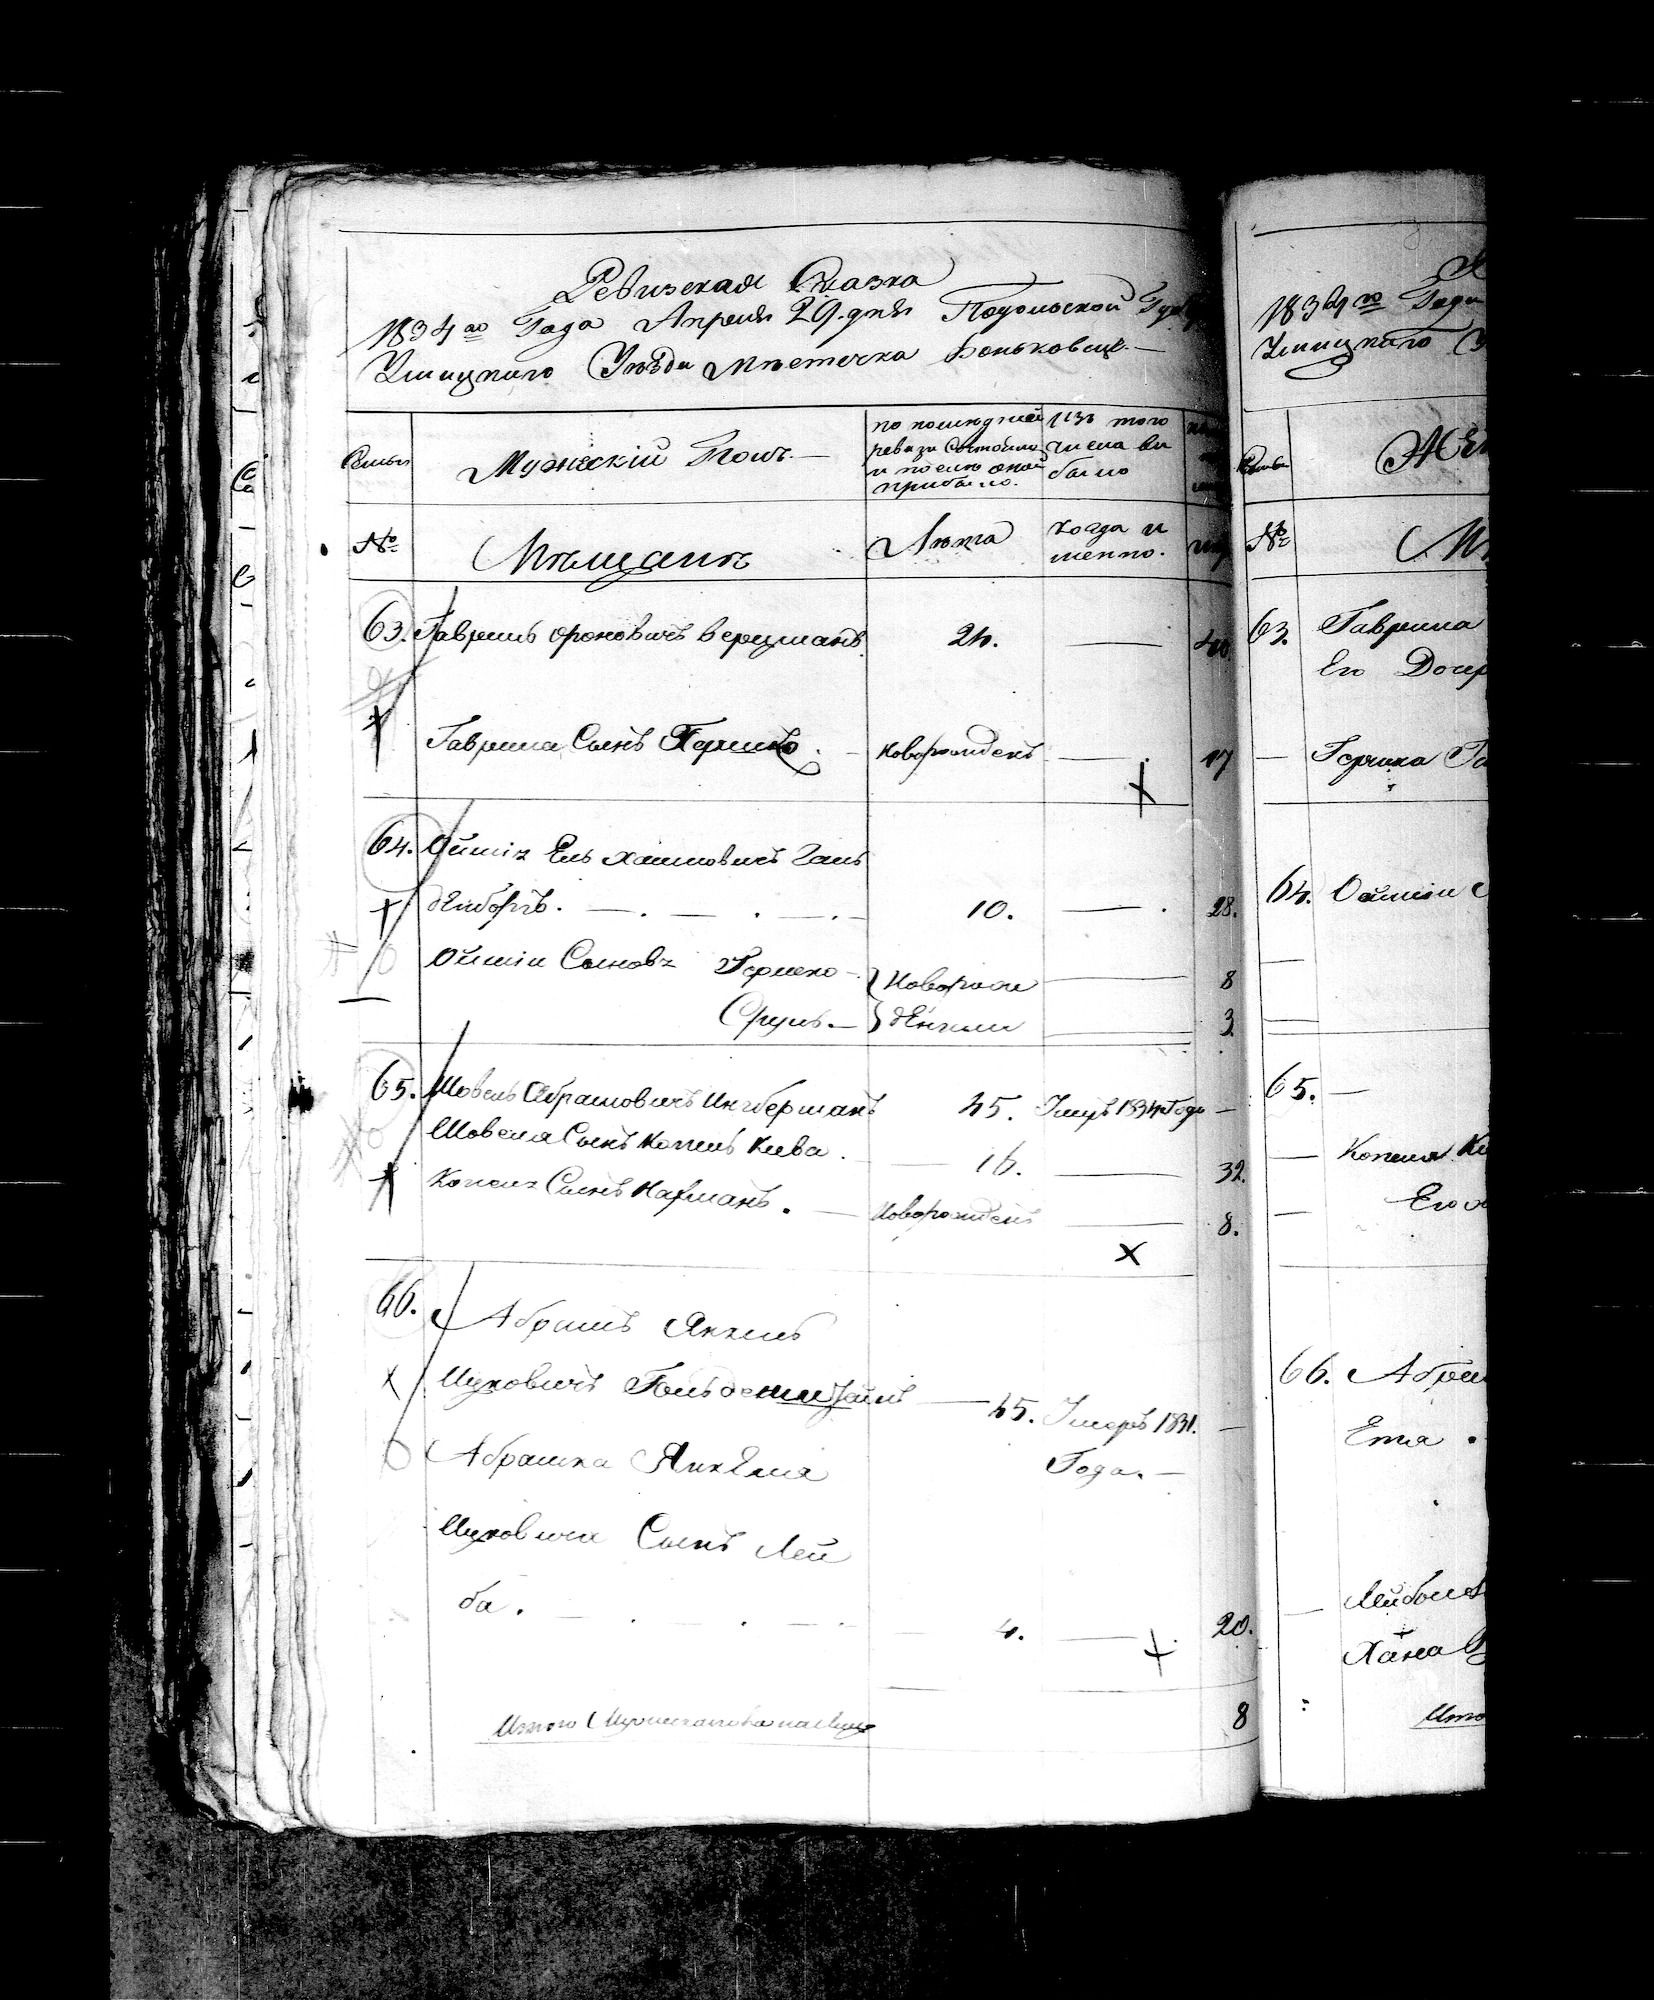 Ревизская Сказка
1834го Года Апреля 29. дня Подольской
Ушицкаго Уезда местечка Воньковец.
Семьи
Мужескій Полъ.
по последней ревизи состояло и после оной прибыло.
Изъ того числа вы было
№
Мещане
Лета
когда и менно.
63. Гаврилъ Ороновичъ Верцманъ 24. — 40
Гаврила Сынъ Гершко. — новорожденъ — 17
64. Ойшія Ель Хаимовичъ Галь
денборгъ. — 10. — 28.
Ойшіи Сыновъ Гершко — новорож — 8
Сруль. — денныи 3
65. Шовель Абрамовичъ Ингберманъ 45. Умеръ 1834 Года —
Шовеля Сынъ Копель Кива. — 16. — 32.
Копеля Сынъ Нахманъ. — Новорожденъ — 8.
66. Абрамъ Янкель
Ицковичъ — 45. Умеръ 1831.
Абрамка Янкеля Года. —
Ицковича Сынъ Лей
ба. — 4. — 20.
Итого 8
1834го Года
Ушицкаго
Семьи
№
63. Гаврила
Его Дочер
— Гершка
64. Ойшіи
65. —
— Копеля
— Его
66.
Лейбы
Хана